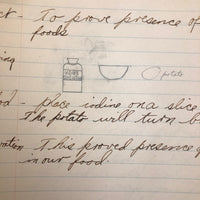 ct - To prove presence of
foods.
ing
potato
od - place iodine on a slice
The potato will turn b
vation This proved presence o
in our food.